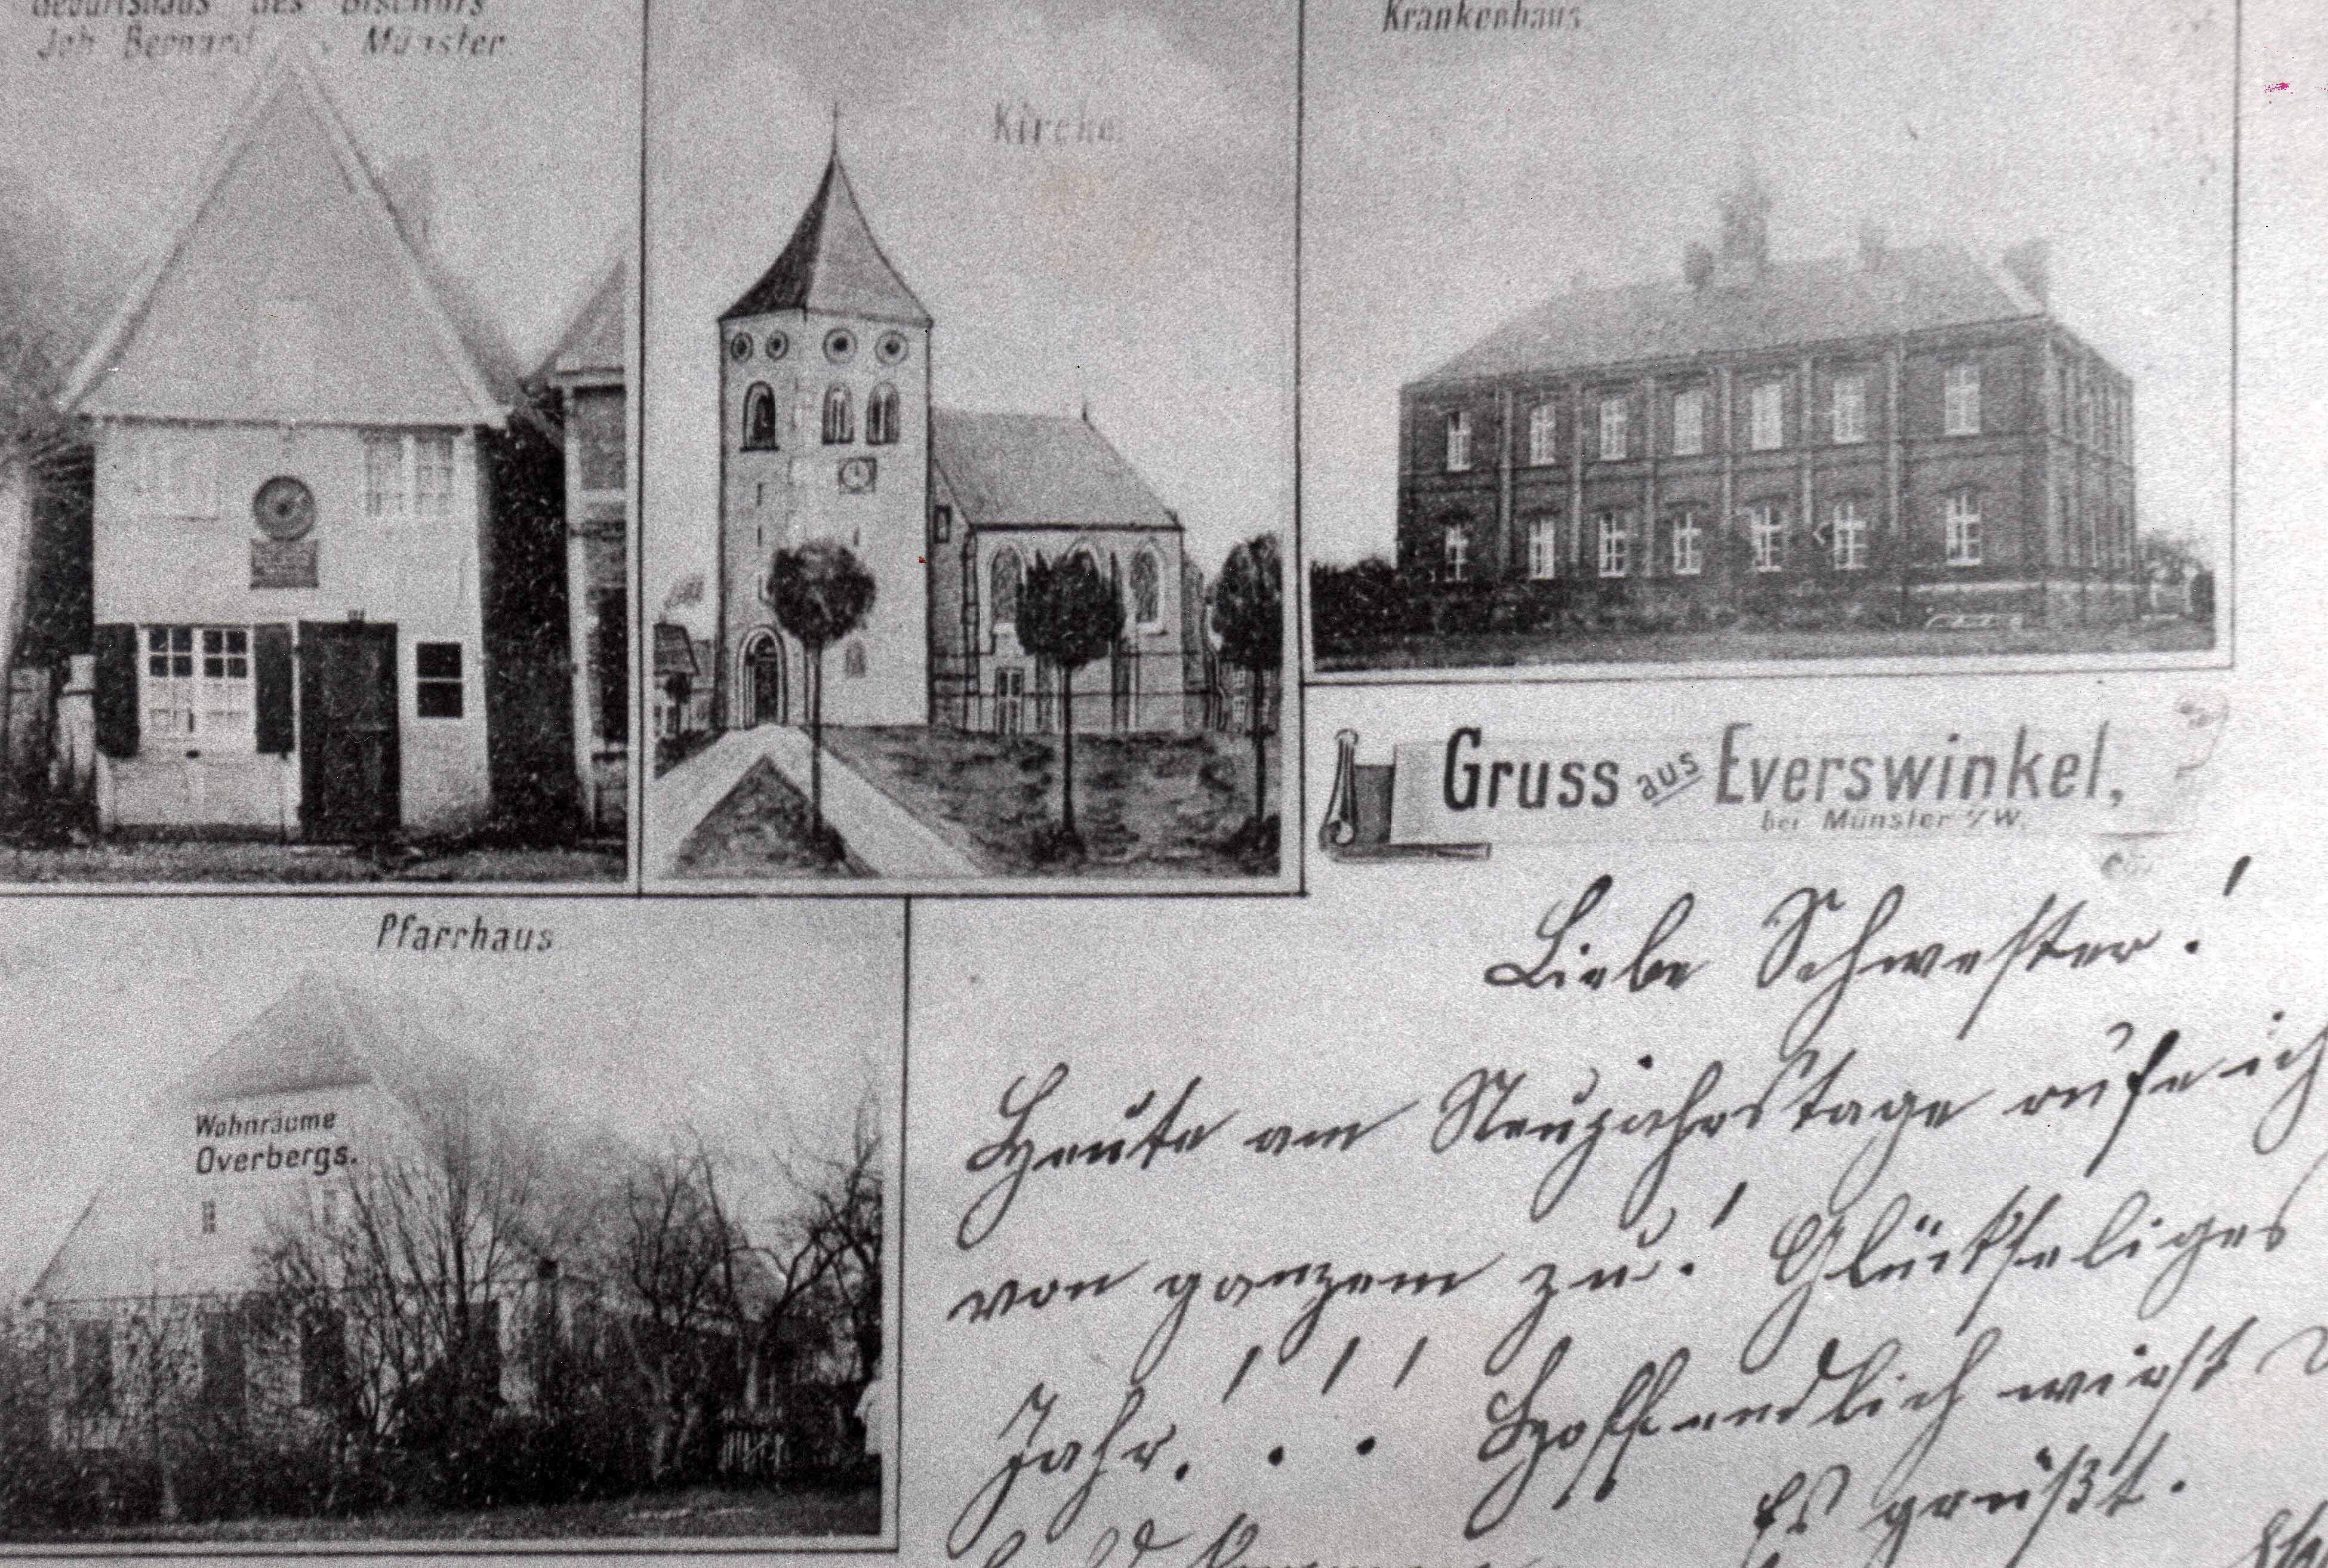 Geburtshaus des Bischofs
Joh Bernard Münster
Kirche.
Krankenhaus
Gruss aus Everswinkel,
bei Münster i/W.
Pfarrhaus
Wohnräume
Overbergs.
Liebe Schwester!
Heute am Neujahrstage rufe ich
von ganzem zu! Glückseliges
Jahr!!! Hoffendlich wirst D
Es grüßt.